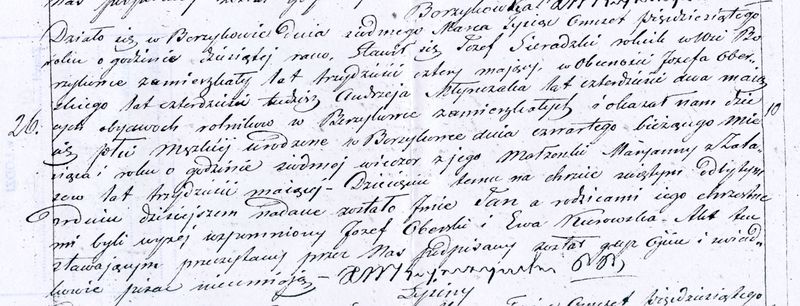 Działo się w Borzykowie dnia siódmego Marca Tysiąc Ośmset Pięćdziesiątego
roku o godzinie dziesiątej rano. Stawił się Józef Sieradzki rolnik w wsi Bo-
rzykowie zamieszkały lat trzydzieści cztery mający, w obecności Józefa Ober-
skiego lat czterdzieści tudzież Andrzeja lat czterdzieści dwa maią-
26. cych obydwóch rolników w Borzykowie zamieszkałych i okazał nam dzie- 10
cię płci męzkiej urodzone w Borzykowie dnia czwartego bieżącego mie-
siąca i roku o godzinie siódmej wieczór z jego Małżonki Maryanny z
lat trzydzieści maiącej – Dziecięciu temu na chrzcie świętym odbytym
w dniu dzisiejszem nadane zostało Imie Jan a rodzicami jego chrzestne-
mi byli wyżej wspomniony Józef Oberski i Ewa – Akt ten
stawaiącym przeczytany przez Nas podpisany został gdyż Ojciec i świad-
kowie pisać nieumieią –